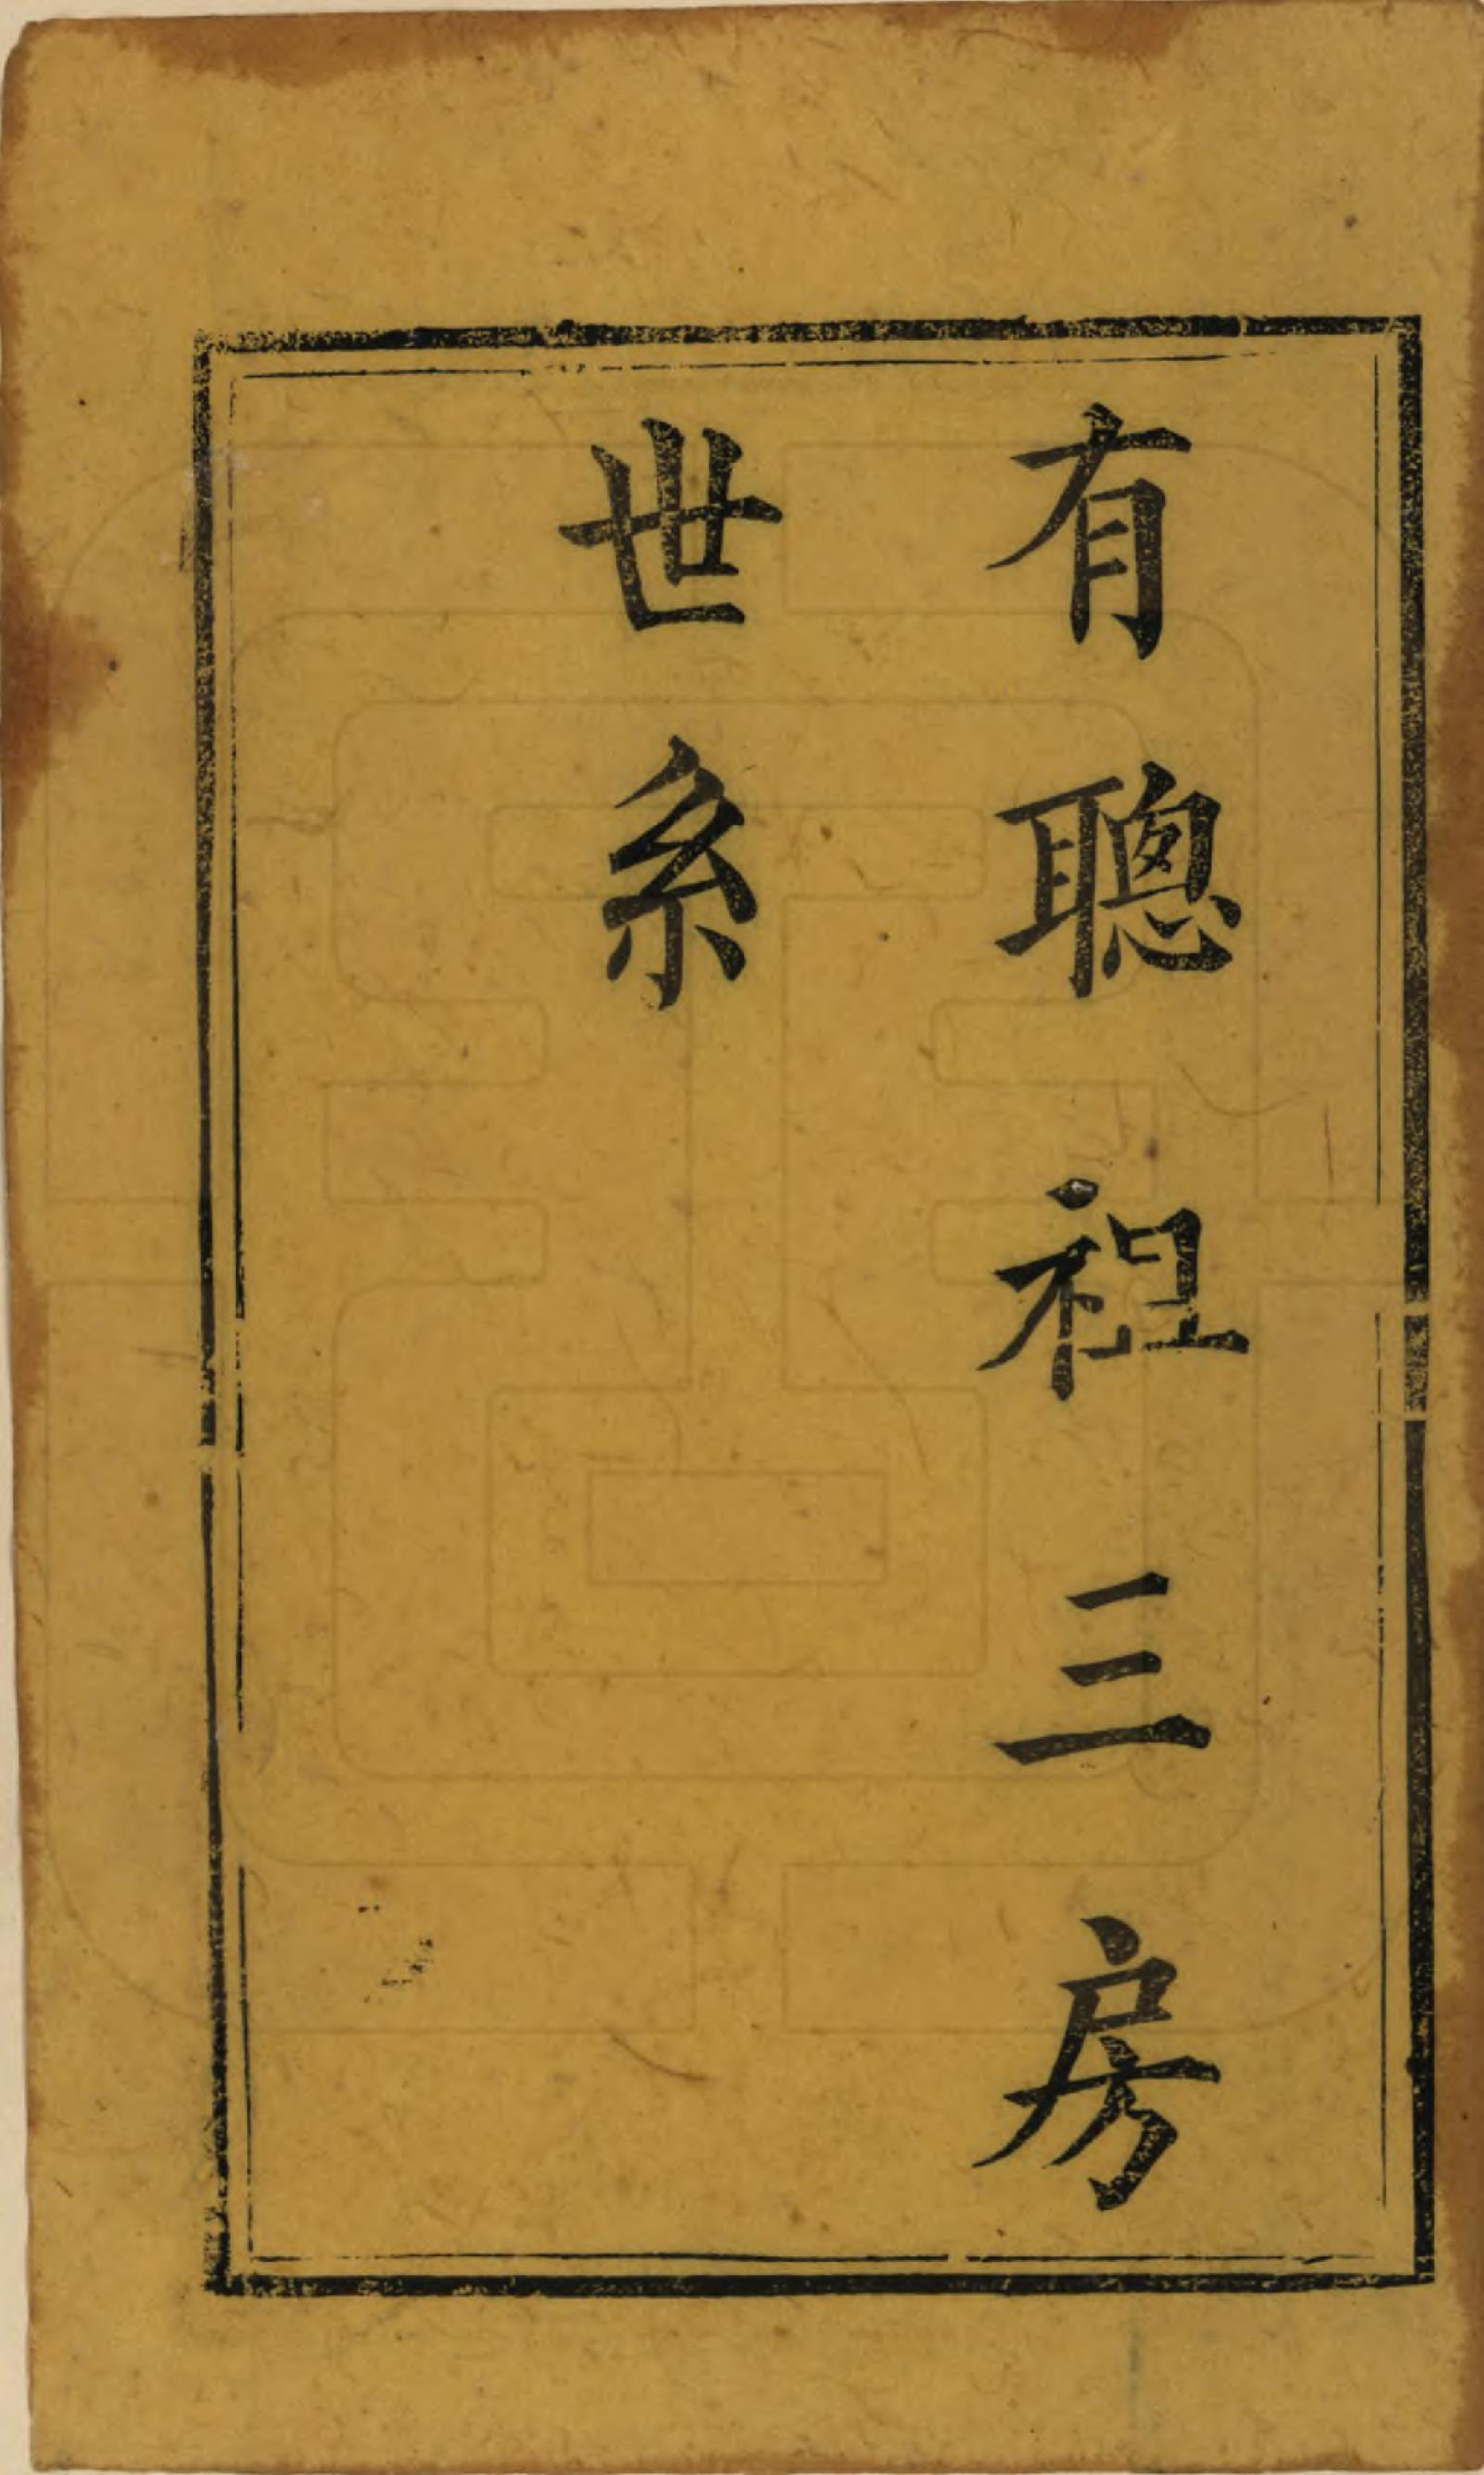 有聰祖三房
世系